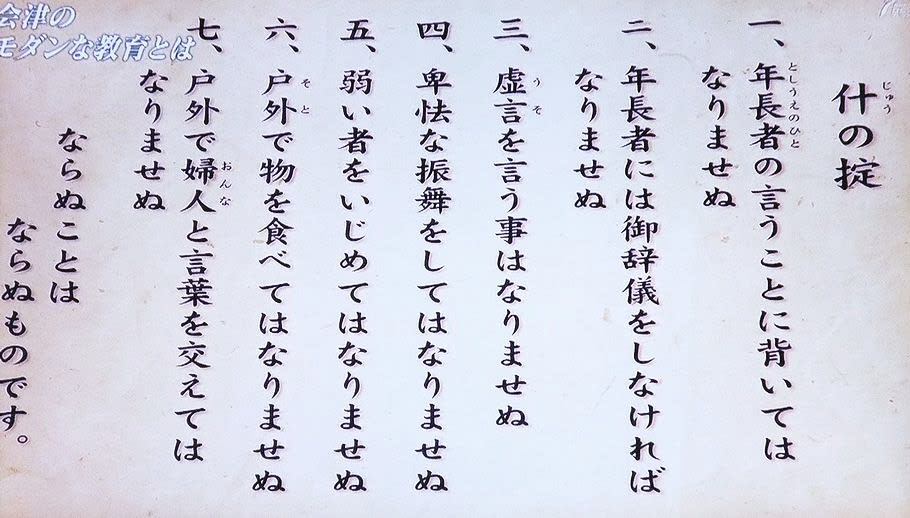 会津の
モダンな教育とは
什の掟
じゅう
一、年長者の言うことに背いては
としうえのひと
なりませぬ
二、年長者には御辞儀をしなければ
なりませぬ
三、虚言を言う事はなりませぬ
うそ
四、卑怯な振舞をしてはなりませぬ
五、弱い者をいじめてはなりませぬ
六、戸外で物を食べてはなりませぬ
そと
七、戸外で婦人と言葉を交えては
おんな
なりませぬ
ならぬことは
ならぬものです。